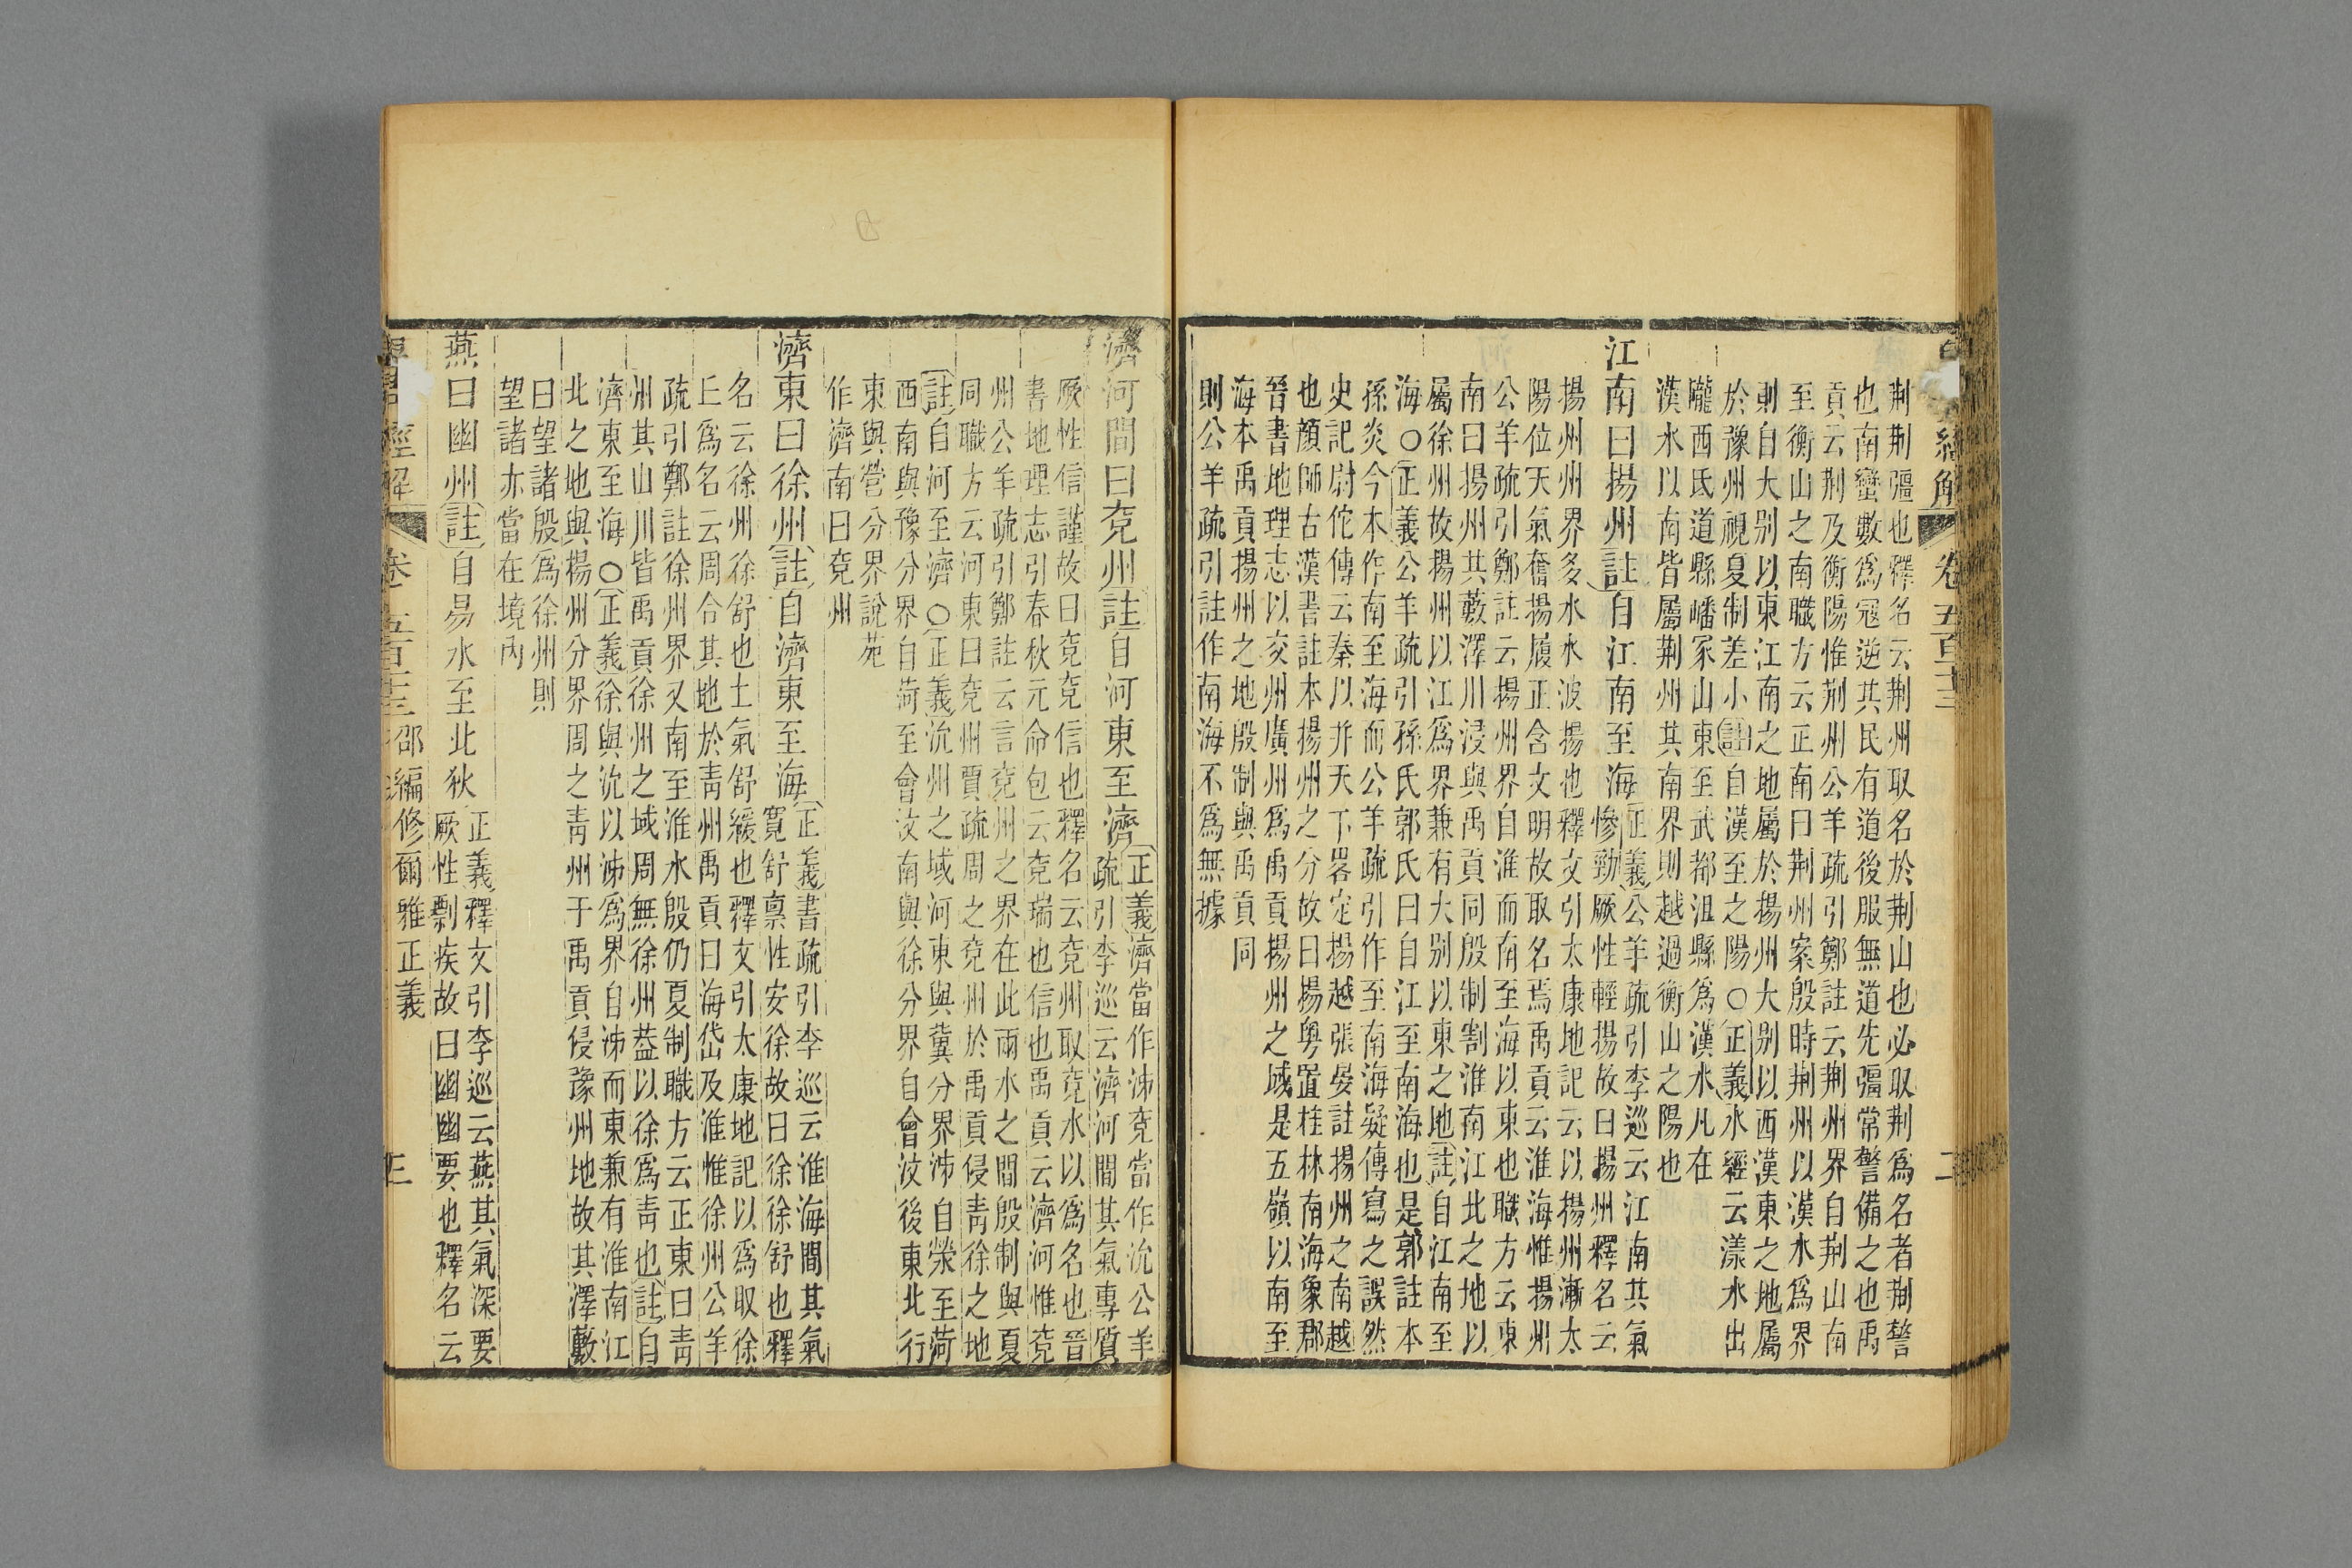 經解
卷五百十三
二
荆荆彊也釋名云荆州取名於荆山也必取荆爲名者荆警
也南蠻數爲寇逆其民有道後服無道先彊常警備之也禹
貢云荆及衡陽惟荆州公羊疏引鄭註云荆州界自荆山南
至衡山之南職方云正南曰荆州案殷時荆州以漢水爲界
則自大别以東江南之地屬於揚州大别以西漢東之地屬
於豫州視夏制差小註自漢至之陽○正義水經云漾水出
隴西氐道縣嶓冢山東至武都沮縣爲漢水凡在
漢水以南皆屬荆州其南界則越過衡山之陽也
江南曰揚州註自江南至海正義公羊疏引李巡云江南其氣
慘勁厥性輕揚故曰揚州釋名云
揚州州界多水水波揚也釋文引太康地記云以揚州漸太
陽位天氣奮揚履正含文明故取名焉禹貢云淮海惟揚州
公羊疏引鄭註云揚州界自淮而南至海以東也職方云東
南曰揚州其藪澤川浸與禹貢同殷制割淮南江北之地以
屬徐州故揚州以江爲界兼有大别以東之地註自江南至
海○正義公羊疏引孫氏郭氏曰自江至南海也是郭註本
孫炎今本作南至海而公羊疏引作至南海疑傳寫之誤然
史記尉佗傳云秦以并天下畧定揚越張晏註揚州之南越
也顏師古漢書註本揚州之分故曰揚粵置桂林南海象郡
晉書地理志以交州廣州爲禹貢揚州之域是五嶺以南至
海本禹貢揚州之地殷制與禹貢同
則公羊疏引註作南海不爲無據
濟河間曰兗州註自河東至濟正義濟當作泲兗當作沇公羊
疏引李巡云濟河間其氣專質
厥性信謹故曰兗兗信也釋名云兗州取兗水以爲名也晉
書地理志引春秋元命包云兗瑞也信也禹貢云濟河惟兗
州公羊疏引鄭註云言兗州之界在此兩水之間殷制與夏
同職方云河東曰兗州賈疏周之兗州於禹貢侵青徐之地
註自河至濟○正義沇州之域河東與冀分界泲自滎至菏
西南與豫分界自菏至會汶南與徐分界自會汶後東北行
東與營分界說苑
作濟南曰兗州
濟東曰徐州註自濟東至海正義書疏引李巡云淮海間其氣
寬舒禀性安徐故曰徐徐舒也釋
名云徐州徐舒也土氣舒緩也釋文引太康地記以爲取徐
丘爲名云周合其地於青州禹貢曰海岱及淮惟徐州公羊
疏引鄭註徐州界又南至淮水殷仍夏制職方云正東曰青
州其山川皆禹貢徐州之域周無徐州葢以徐爲青也註自
濟東至海○正義徐與沇以泲爲界自泲而東兼有淮南江
北之地與揚州分界周之青州于禹貢侵豫州地故其澤藪
曰望諸殷爲徐州則
望諸亦當在境內
燕曰幽州註自易水至北狄正義釋文引李巡云燕其氣深要
厥性剽疾故曰幽幽要也釋名云
經解
卷五百十三
邵編修爾雅正義
三